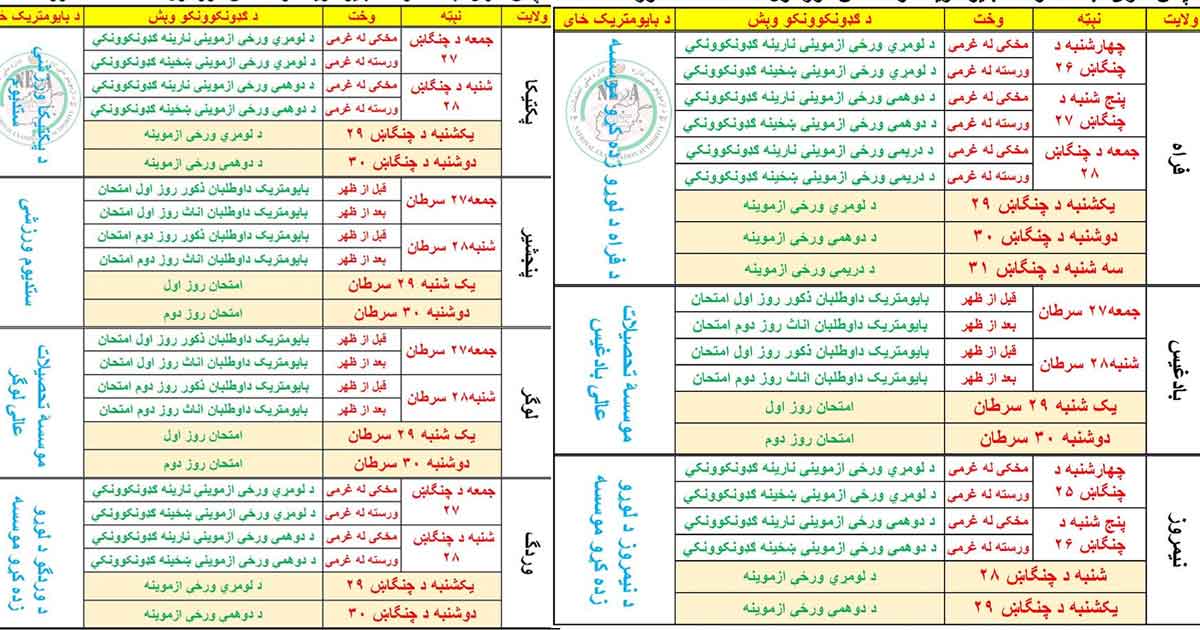 ولایت	نېټه	وخت	د ګډونکوونکو وېش	د بایومتریک ځای
فراه
چهارشنبه د چنګاښ ۲۶
مخکې له غرمې	د لومړي ورځې ازموینې نارینه ګډونکوونکي
ورسته له غرمې	د لومړي ورځې ازموینې ښځینه ګډونکوونکي
پنج شنبه د چنګاښ ۲۷
مخکې له غرمې	د دوهمې ورځې ازموینې نارینه ګډونکوونکي
ورسته له غرمې	د دوهمې ورځې ازموینې ښځینه ګډونکوونکي
جمعه د چنګاښ ۲۸
مخکې له غرمې	د دریمې ورځې ازموینې نارینه ګډونکوونکي
ورسته له غرمې	د دریمې ورځې ازموینې ښځینه ګډونکوونکي
یکشنبه د چنګاښ ۲۹	د لومړي ورځې ازموینه
دوشنبه د چنګاښ ۳۰	د دوهمې ورځې ازموینه
سه شنبه د چنګاښ ۳۱	د دریمې ورځې ازموینه
د فراه د لوړو زده کړو موسسه
بادغیس
جمعه۲۷ سرطان
قبل از ظهر	بایومتریک داوطلبان ذکور روز اول امتحان
بعد از ظهر	بایومتریک داوطلبان اناث روز دوم امتحان
شنبه۲۸ سرطان
قبل از ظهر	بایومتریک داوطلبان ذکور روز دوم امتحان
بعد از ظهر	بایومتریک داوطلبان اناث روز دوم امتحان
یک شنبه ۲۹ سرطان	امتحان روز اول
دوشنبه ۳۰ سرطان	امتحان روز دوم
موسسۀ تحصیلات عالی بادغیس
نیمروز
چهارشنبه د چنګاښ ۲۵
مخکې له غرمې	د لومړي ورځې ازموینې نارینه ګډونکوونکي
ورسته له غرمې	د لومړي ورځې ازموینې ښځینه ګډونکوونکي
پنج شنبه د چنګاښ ۲۶
مخکې له غرمې	د دوهمې ورځې ازموینې نارینه ګډونکوونکي
ورسته له غرمې	د دوهمې ورځې ازموینې ښځینه ګډونکوونکي
شنبه د چنګاښ ۲۸	د لومړي ورځې ازموینه
یکشنبه د چنګاښ ۲۹	د دوهمې ورځې ازموینه
د نیمروز د لوړو زده کړو موسسه
ولایت	نېټه	وخت	د ګډونکوونکو وېش	د بایومتریک ځای
پکتیکا
جمعه د چنګاښ ۲۷
مخکې له غرمې	د لومړي ورځې ازموینې نارینه ګډونکوونکي
ورسته له غرمې	د لومړي ورځې ازموینې ښځینه ګډونکوونکي
شنبه د چنګاښ ۲۸
مخکې له غرمې	د دوهمې ورځې ازموینې نارینه ګډونکوونکي
ورسته له غرمې	د دوهمې ورځې ازموینې ښځینه ګډونکوونکي
یکشنبه د چنګاښ ۲۹	د لومړي ورځې ازموینه
دوشنبه د چنګاښ ۳۰	د دوهمې ورځې ازموینه
د پکتیکا ورزشي ستډیوم
پنجشیر
جمعه۲۷ سرطان
قبل از ظهر	بایومتریک داوطلبان ذکور روز اول امتحان
بعد از ظهر	بایومتریک داوطلبان اناث روز اول امتحان
شنبه۲۸ سرطان
قبل از ظهر	بایومتریک داوطلبان ذکور روز دوم امتحان
بعد از ظهر	بایومتریک داوطلبان اناث روز دوم امتحان
یک شنبه ۲۹ سرطان	امتحان روز اول
دوشنبه ۳۰ سرطان	امتحان روز دوم
ستدیوم ورزشی
لوگر
جمعه۲۷ سرطان
قبل از ظهر	بایومتریک داوطلبان ذکور روز اول امتحان
بعد از ظهر	بایومتریک داوطلبان اناث روز اول امتحان
شنبه۲۸ سرطان
قبل از ظهر	بایومتریک داوطلبان ذکور روز دوم امتحان
بعد از ظهر	بایومتریک داوطلبان اناث روز دوم امتحان
یک شنبه ۲۹ سرطان	امتحان روز اول
دوشنبه ۳۰ سرطان	امتحان روز دوم
موسسۀ تحصیلات عالی لوگر
وردگ
جمعه د چنګاښ ۲۷
مخکې له غرمې	د لومړي ورځې ازموینې نارینه ګډونکوونکي
ورسته له غرمې	د لومړي ورځې ازموینې ښځینه ګډونکوونکي
شنبه د چنګاښ ۲۸
مخکې له غرمې	د دوهمې ورځې ازموینې نارینه ګډونکوونکي
ورسته له غرمې	د دوهمې ورځې ازموینې ښځینه ګډونکوونکي
یکشنبه د چنګاښ ۲۹	د لومړي ورځې ازموینه
دوشنبه د چنګاښ ۳۰	د دوهمې ورځې ازموینه
د وردګو د لوړو زده کړو موسسه